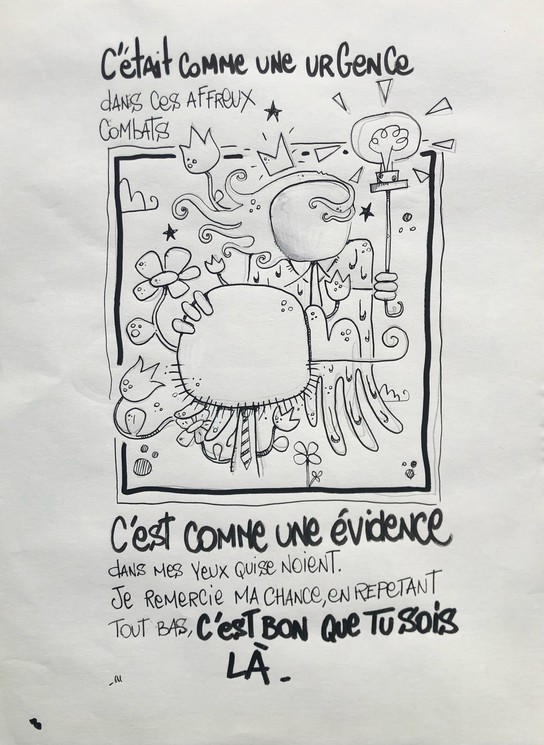 C'était comme une urgence
dans ces affreux
combats
C'est comme une évidence
dans mes yeux qui se noient.
Je remercie ma chance, en repetant
tout bas, c'est bon que tu sois
là.